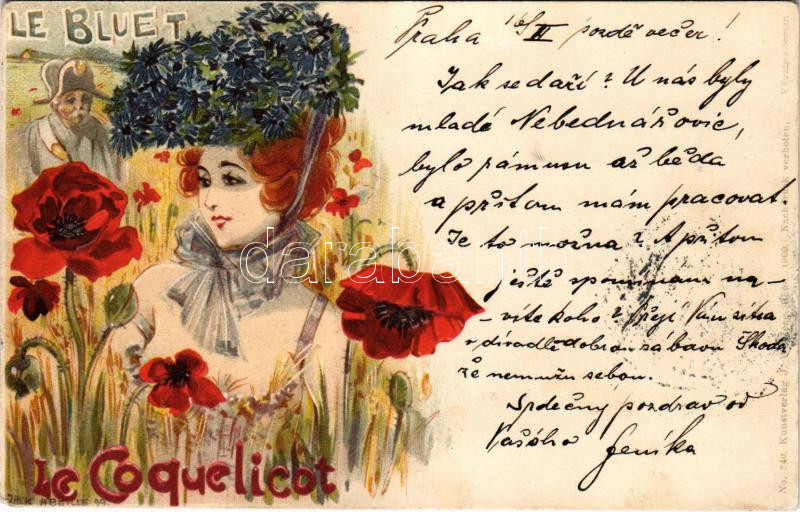 LE BLUET
Le Coquelicot
JACK ABEILLÉ 99.
Praha 16/II pozdě večer!
Jak se daří? U nás byly
mladé Nebednářovic,
bylo rámusu až běda
a přitom mám pracovat.
Je to možna? A přitom
ještě spomínam na
víte koho? Přeji Vám zítra
v divadle dobrou zábavu Škoda
že nemužu sebou.
Srdečny pozdrav od
Vašého Jeníka
darabanth
No. 240. Kunstverlag 1900. Nachdruck verboten.